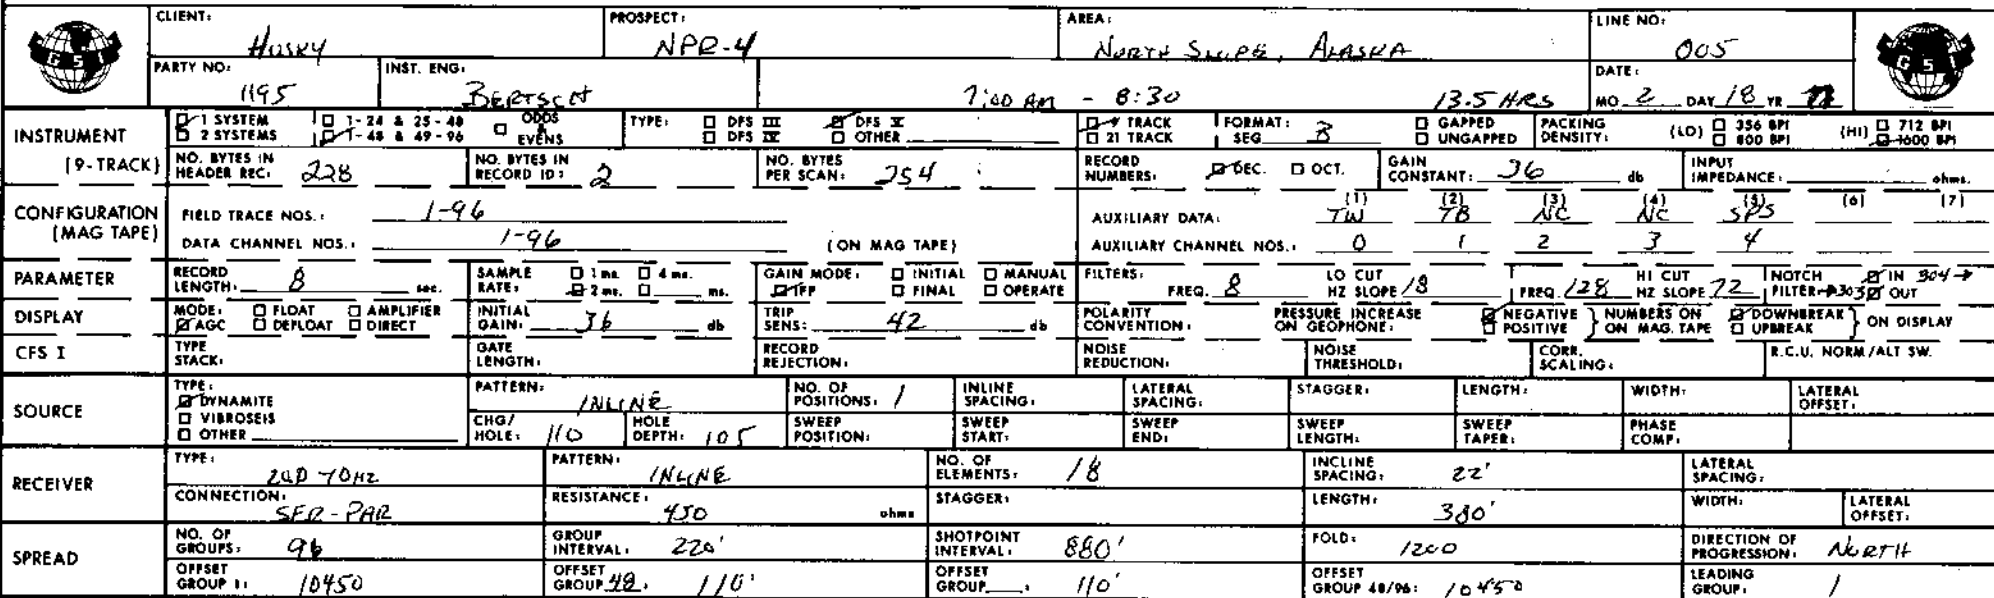 CLIENT: Husky PROSPECT: NPR-4 AREA: NORTH SLOPE, ALASKA LINE NO: 005
GSI GSI
PARTY NO: 1195 INST. ENG: BERTSCH 7:00 AM - 8:30 13.5 HRS DATE: MO. 2 DAY 18 YR
INSTRUMENT 1 SYSTEM 1-24 & 25-48 ODDS & EVENS TYPE: DFS III DFS V 9 TRACK FORMAT: GAPPED PACKING (LO) 356 BPI (HI) 712 BPI
2 SYSTEMS 1-48 & 49-96 DFS IV OTHER 21 TRACK SEG B UNGAPPED DENSITY: 800 BPI 1600 BPI
(9-TRACK) NO. BYTES IN HEADER REC: 228 NO. BYTES IN RECORD ID: 2 NO. BYTES PER SCAN: 254 RECORD NUMBERS: DEC. OCT. GAIN CONSTANT: 36 db INPUT IMPEDANCE: ohms.
CONFIGURATION (MAG TAPE) FIELD TRACE NOS.: 1-96 AUXILIARY DATA: (1) TW (2) TB (3) NC (4) NC (5) SPS (6) (7)
DATA CHANNEL NOS.: 1-96 (ON MAG TAPE) AUXILIARY CHANNEL NOS.: 0 1 2 3 4
PARAMETER RECORD LENGTH: 8 sec. SAMPLE RATE: 1 ms. 4 ms. 2 ms. ms. GAIN MODE: INITIAL MANUAL IFP FINAL OPERATE FILTERS: FREQ. 8 LO CUT HZ SLOPE 18 FREQ. 128 HI CUT HZ SLOPE 72 NOTCH FILTER IN 304→ →303 OUT
DISPLAY MODE: FLOAT AMPLIFIER AGC DEFLOAT DIRECT INITIAL GAIN: 36 db TRIP SENS: 42 db POLARITY CONVENTION: PRESSURE INCREASE ON GEOPHONE: NEGATIVE POSITIVE NUMBERS ON ON MAG. TAPE DOWNBREAK UPBREAK ON DISPLAY
CFS I TYPE STACK: GATE LENGTH: RECORD REJECTION: NOISE REDUCTION: NOISE THRESHOLD: CORR. SCALING: R.C.U. NORM/ALT SW.
SOURCE TYPE: DYNAMITE VIBROSEIS OTHER PATTERN: INLINE NO. OF POSITIONS: 1 INLINE SPACING: LATERAL SPACING: STAGGER: LENGTH: WIDTH: LATERAL OFFSET:
CHG/HOLE: 110 HOLE DEPTH: 105 SWEEP POSITION: SWEEP START: SWEEP END: SWEEP LENGTH: SWEEP TAPER: PHASE COMP:
RECEIVER TYPE: 20D-10HZ PATTERN: INLINE NO. OF ELEMENTS: 18 INCLINE SPACING: 22' LATERAL SPACING:
CONNECTION: SER-PAR RESISTANCE: 450 ohms STAGGER: LENGTH: 380' WIDTH: LATERAL OFFSET:
SPREAD NO. OF GROUPS: 96 GROUP INTERVAL: 220' SHOTPOINT INTERVAL: 880' FOLD: 1200 DIRECTION OF PROGRESSION: NORTH
OFFSET GROUP 1: 10450 OFFSET GROUP 48: 110' OFFSET GROUP : 110' OFFSET GROUP 48/96: 10450 LEADING GROUP: 1